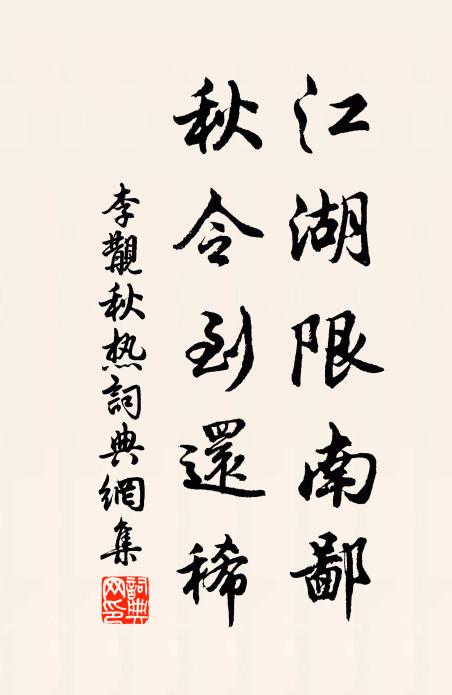 江湖限南鄙
秋令到還稀
李覯秋热詞典網集
詞典网印